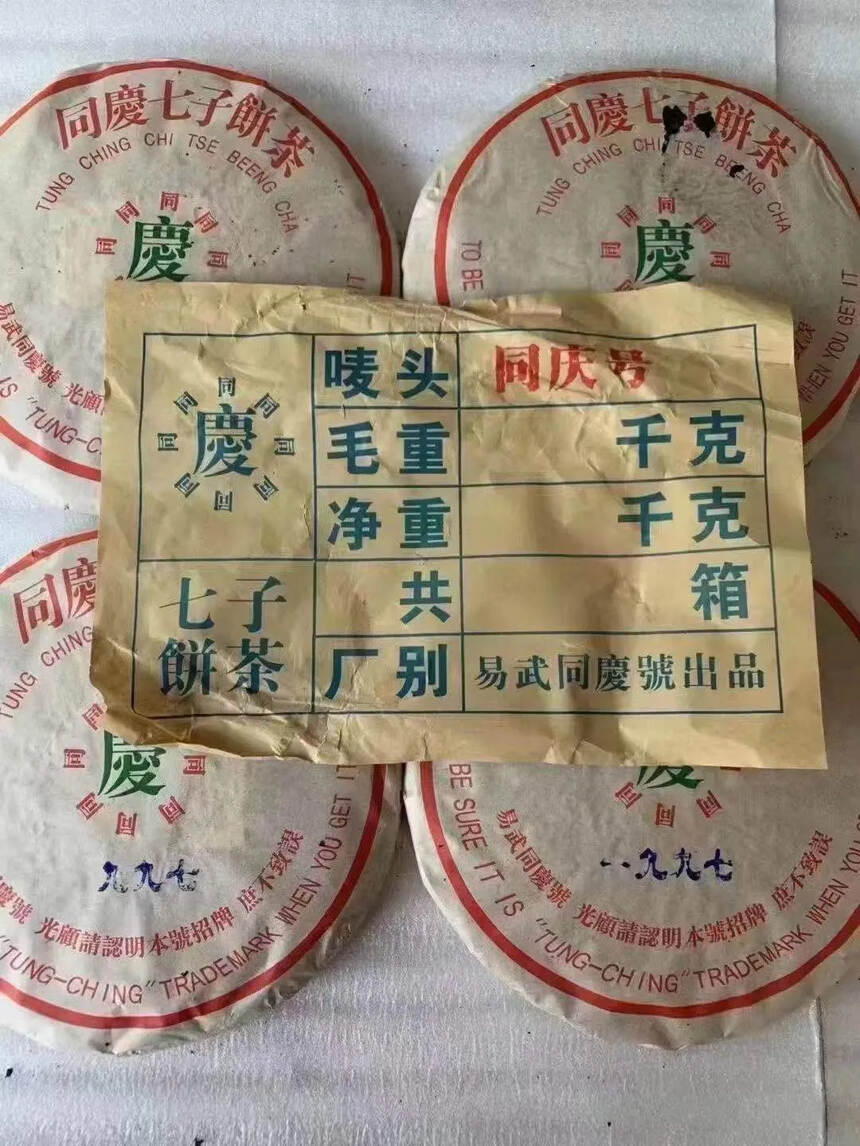 同慶七子餅茶
TUNG CHING CHI TSE BEENG CHA
同 同 同 同 同 同
慶
易武同慶號 光顧
IS "TUNG-C
GET IT
同慶七子餅茶
TUNG CHING CHI TSE BEENG CHA
同 同 同 同 同 同 同
慶
TO BE
WHEN YOU GET IT
致誤
同 同 同 同 同 同 同 同
慶
七子
餅茶
唛头 同庆号
毛重 千克
净重 千克
共 箱
厂别 易武同慶號出品
同慶
TUNG CHING
同 同 同 同 同 同 同
慶
九九七
慶號 光顧請認明本號招牌 庶不致誤
"TUNG-CHING" TRADEMARK WHEN YOU GET IT
慶
同 同 同
一九九七
易武同慶號 光顧請認明本號招牌 庶不致誤
BE SURE IT IS "TUNG-CHING" TRADEMARK WHEN YOU